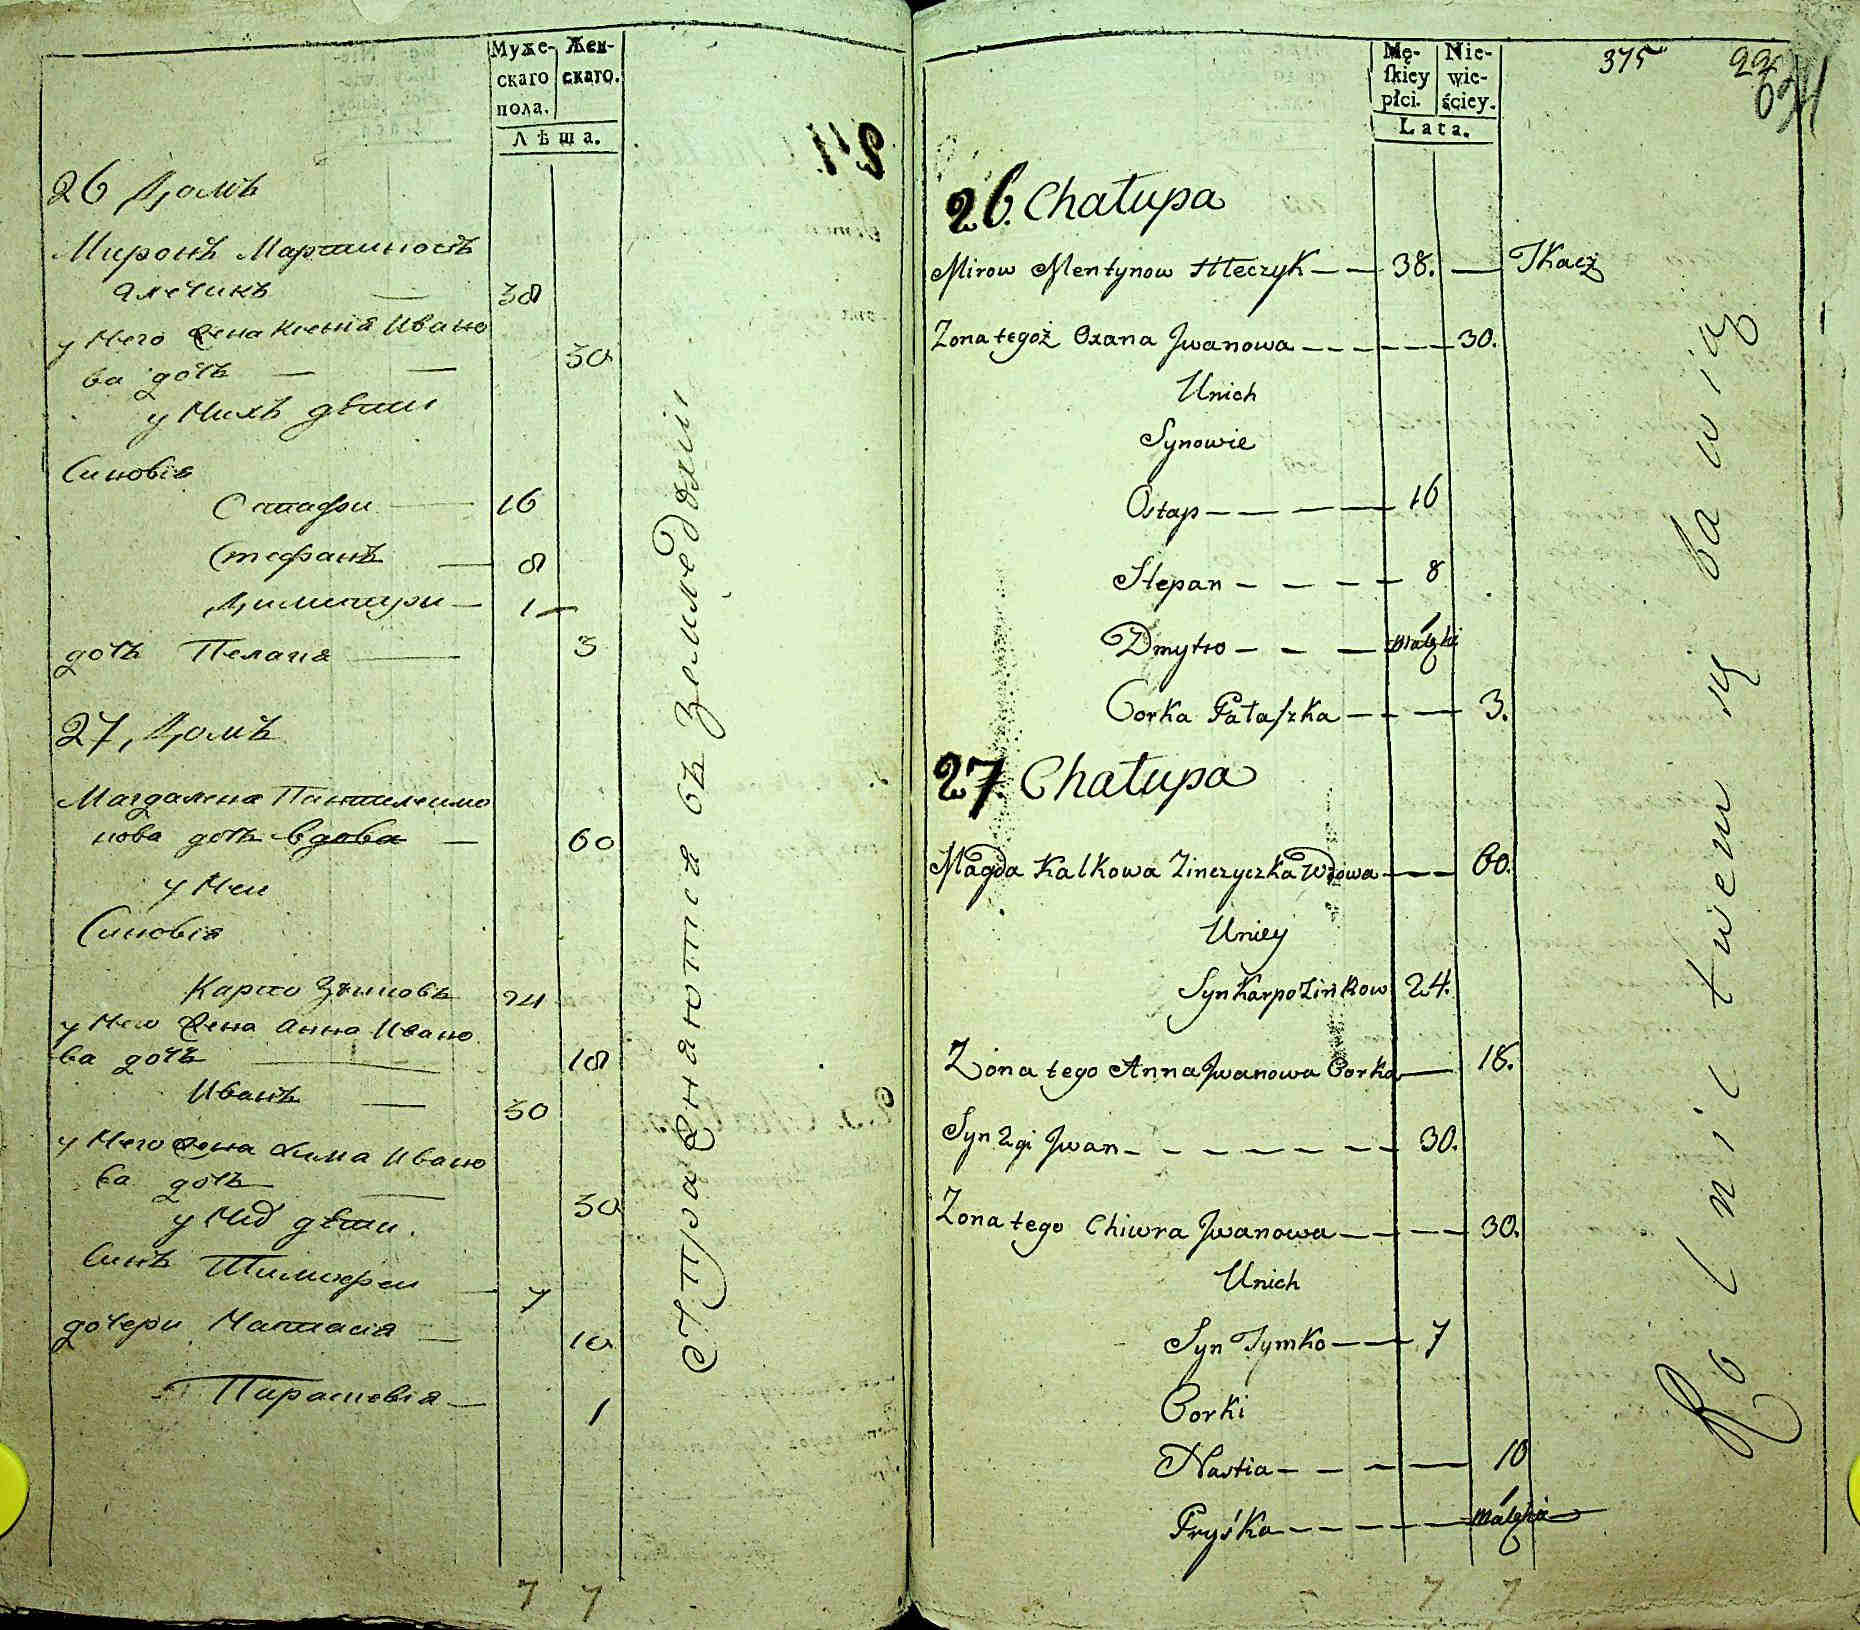 Муже-
скаго
пола.
Жен-
скаго.
Лѣта.
26 Домъ
Миронъ Мартиновъ
Ялечикъ — 38
у Него жена Ксенія Ивано
ва дочь — — 30
у Нихъ дѣти
Синовія
Стафи — 16
Стефанъ — 8
Димитри — 1
дочь Пелагія — 3
27, Домъ
Магдалена Пантилеимо
нова дочь вдова — 60
у Неи
Синовія
Карпо Зѣновъ 24
у Него жена Анна Ивано
ва дочь — 18
Иванъ — 30
у Него жена Хима Ивано
ва дочь — 30
у Них дѣти.
Синъ Тимофеи — 7
дочери Натасія — 10
Параскевія — 1
Упражняются въ Земледѣліи
7 7
Mę-
skiey
płci.
Nie-
wie-
ściey.
Lata.
375
26. Chałupa
Mirow Mentynow — — 38. — Tkacz
Zona tegoż Oxana Jwanowa — — — — — 30.
Unich
Synowie
Ostap — — — — 16
Stepan — — — — 8
Dmytro — — — małęki
Corka Pałaszka — — — 3.
27. Chałupa
Magda Kalkowa Zinczyczka Wdowa — — 60.
Uniey
Syn Karpo Zinkow 24.
Zona tego Anna Jwanowa Corka — 18.
Syn 2gi Jwan — — — — — — — 30.
Zona tego Chiwra Jwanowa — — — — 30.
Unich
Syn Tymko — — 7
Corki
Nastia — — — — 10
Pryśka — — — — — małęka
Rolnictwem się bawią
7 7